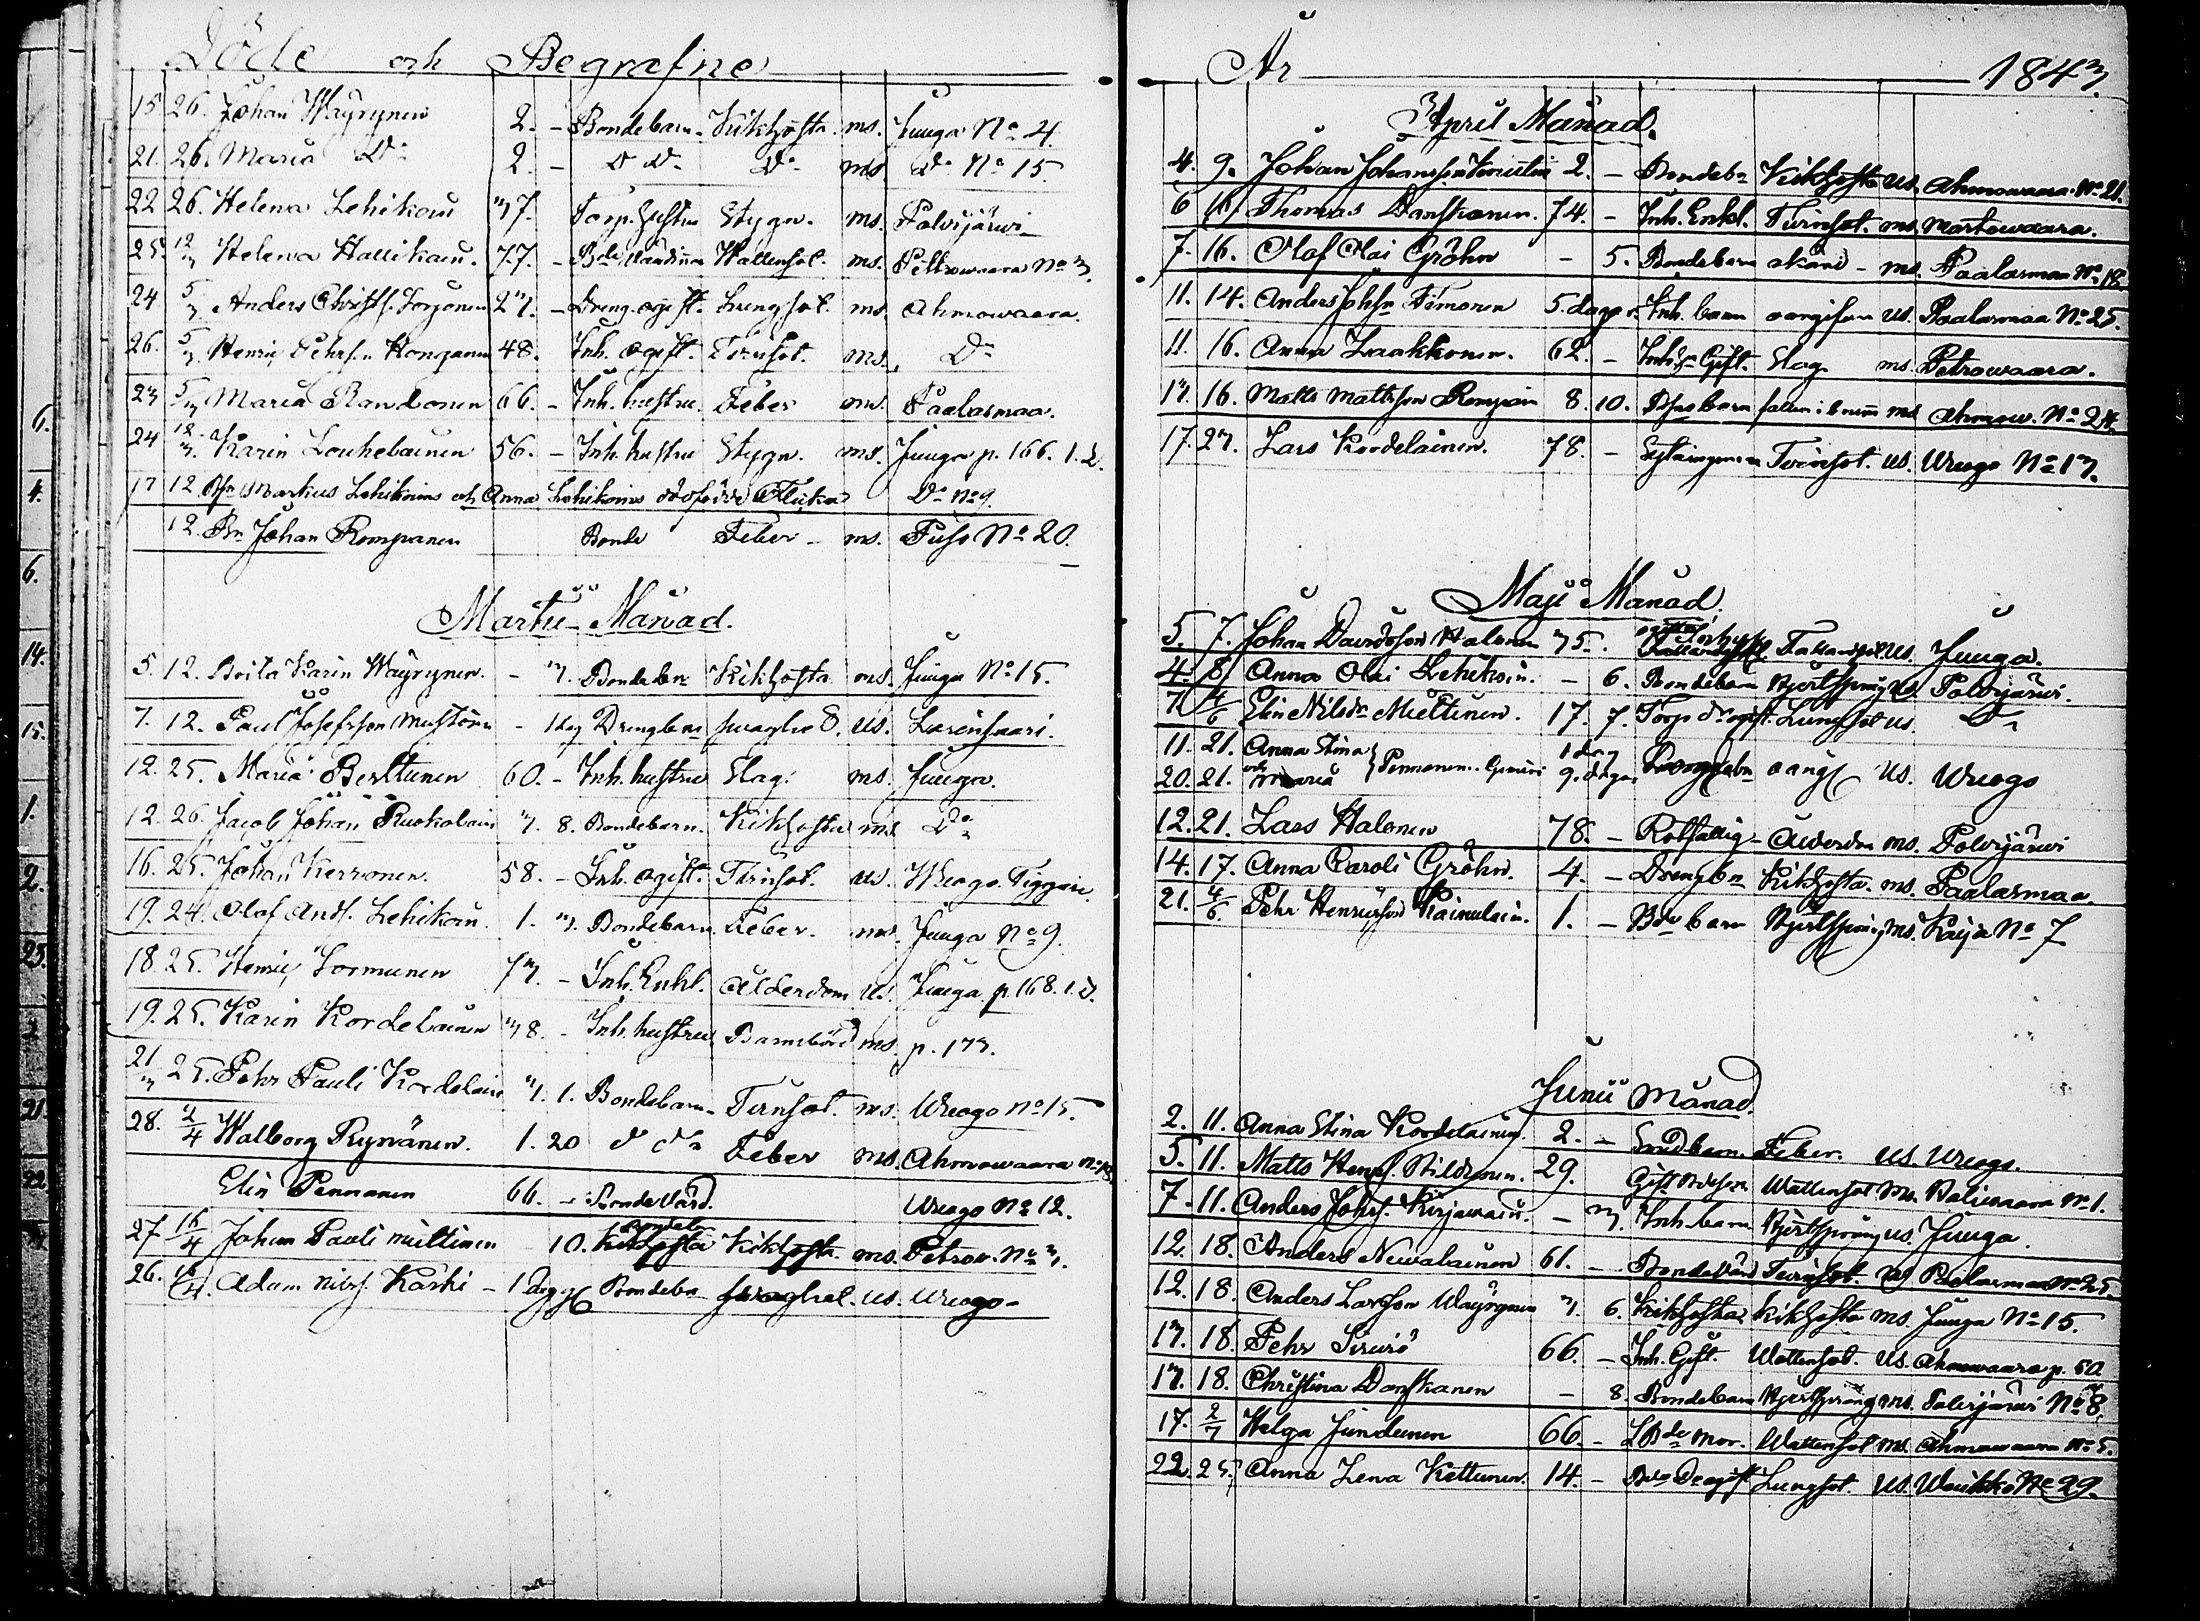 Döde och Begrafne
15 26. Johan Wäyrynen 2. - Bondebarn Kikhosta ms. Juuga No 4.
21. 26. Maria Do 2. - D Do Do ms Do No 15.
22 26. Helena Lehikoin 37. Torp. hustru Stygn. ms. Polvijärvi
25. 12/3 Helena Hallikain. 77. - Bde Wattensot. ms. Petrowaara No 3
24 5/3 Anders Christ. Sorjonen 23. - Dreng. ogift. Lungsot. ms. Ahmowaara.
26. 5/3 Henric Pehrs.n Hongan 48. Inh. ogift. Tvinsot. ms. Do
23 5/3 Maria Randonen 66. - Inh. hustru Feber ms. Paalasmaa.
24 12/3. Karin Louhelainen 56. - Inh. hustru Stygn. ms. Juuga p. 166. 1. d.
17 12 Markus Lehikoins och Anna Lehikoins dödfödde Flicka Do No 9.
12. Bn Johan Rompanen Bonde Feber - ms. Fuss No 20.
Martii Månad.
5. 12. Brita Karin Wäyrynen. - 3. Bondebn Kikhosta ms. Juuga No 15.
7. 12. Paul Josefsson Mustoin - 1 dag Drengbn swaghe us. Larinsaari.
12. 25. Maria Berttunen 60. - Inh. hustru Slag. ms. Juuga.
12. 26. Jacob Johan Ruokolain 3. 8. Bondebarn. Kikhosta ms. Do
16. 25. Johan Kerronen. 58. - Inh. ogift. Tvinsot. us. Wuogo. Tiggare
19. 24. Olaf And. Lehikoin. 1. 3. Bondebarn Feber. ms. Juuga No 9.
18. 25. Henric Sormunen 73. - Inh. Enkl. Ålderdom us. Juuga p. 168. 1. d.
19. 25. Karin Kordelainen 38. - Inh. hustru Barnsbörd ms. p. 173.
21/3 25. Pehr Pauli Kordelain 3. 1. Bondebarn Tvinsot. ms. Wuogo No 15.
28. 2/4 Walborg Ryynänen. 1. 20 d do Feber ms. Ahmowaara
Elin Pennanen 66. - Bonde Wärd. Wuogo No 12.
27 16/4 Johan Pauli Miettinen 10. Bondebn Kikhosta ms. Petrow. No 3.
26. 16/4. Adam Nils. Kärki - 1 Dag Bondebn swaghet. us. Wuogo
År 1843.
April Månad.
4. 9. Johan Johansson 2. - Bondebn Kikhosta us. Ahmowaara. No 21.
6 16. Thomas Danskanen. 74. - Inh. Enkl. Tvinsot. ms. Martowaara.
7. 16. Olaf Olai Gröhn - 5. Bondebarn okänd - ms. Paalasmaa No 18.
11. 14. Anders Johs.n Timonen 5. dagar. Inh. barn oangifven us. Paalasmaa No 25.
11. 16. Anna Laakkonen. 62. - Inh. Gift. Slag ms. Petrowaara.
13. 16. Matts Mattsson Rompain 8. 10. barn fallen i brunn ms Ahmow. No 24.
17. 23. Lars Kordelainen. 78. - Sytningsman Tvinsot. us. Wuogo No 13.
Maji Månad.
5. 7. Johan Davidsson Halonen 35. us. Juuga.
4. 8. Anna Olai Lehikoin. - 6. Bondebarn Hjertsprång us. Polvijärvi.
7. 4/6 Elin Nilsdr Miettinen. 17. 7. Torp dr ogift. Lungsot us. Do
11. 21. Anna Stina 1 dag
20. 21. och Maria } Pennanen. Gemini 9. dagar oangf us. Wuogo
12. 21. Lars Halonen 78. - Rotfattig - Ålderdom ms. Polvijärvi
14. 17. Anna Caroli Gröhn. 4. - Drengbn Kikhosta. ms. Paalasmaa.
21. 4/6. Pehr Henricsson Kainulain. 1. - Bde barn Hjertsprång ms. Kajo No 7
Junii Månad.
2. 11. Anna Stina Kordelainen. 2. - barn. Feber. us. Wuogo.
5. 11. Matts Henrs. 29. Gift Wattensot ms. No 1.
7. 11. Anders Johs. Kirjawain. - 3. Inh. barn Hjertsprång us. Juuga.
12. 18. Anders Newalainen 61. - Bondewärd Tvinsot. us Paalasmaa No 25.
12. 18. Anders Larsson Wäyrynen 3. 6. Kikhosta ms. Juuga No 15.
13. 18. Pehr Sirwiö 66. - Inh. Gift. Wattensot. us. Ahmowaara p. 50
13. 18. Christina Danskanen - 8. Bondebarn Hjertsprång ms. Polvijärvi No 8.
17. 2/7 Helga Jundunen 66. - Bde mor. Wattensot ms. Ahmowaara No 5.
22. 25. Anna Lena Kettunen. 14. - Lungsot. us. No 29.
6.
4.
6.
14.
15.
1.
2.
23.
21.
22